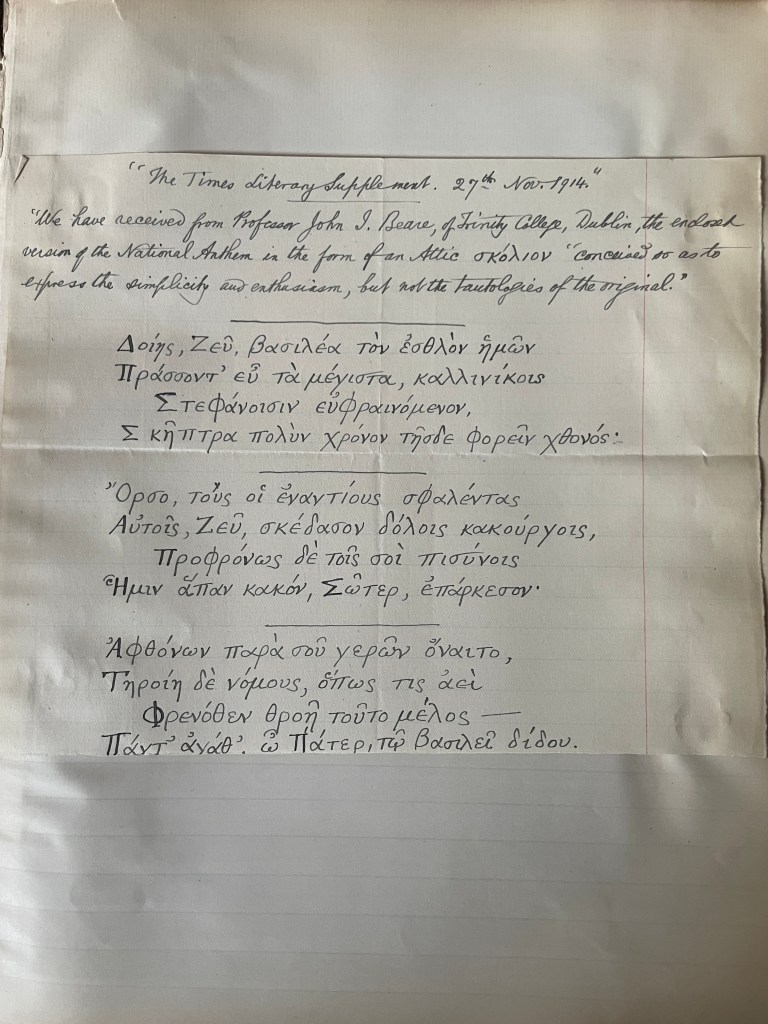 "The Times Literary Supplement. 27th Nov. 1914."
"We have received from Professor John I. Beare, of Trinity College, Dublin, the enclosed
version of the National Anthem in the form of an Attic σκόλιον "conceived so as to
express the simplicity and enthusiasm, but not the tautologies of the original."
Δοίης, Ζεῦ, βασιλέα τὸν ἐσθλὸν ἡμῶν
Πράσσοντ' εὖ τὰ μέγιστα, καλλινίκοις
Στεφάνοισιν εὐφραινόμενον,
Σκῆπτρα πολὺν χρόνον τῆσδε φορεῖν χθονός·
Ὄρσο, τοὺς οἱ ἐναντίους σφαλέντας
Αὐτοῖς, Ζεῦ, σκέδασον δόλοις κακούργοις,
Προφρόνως δὲ τοῖς σοὶ πισύνοις
Ἡμιν ἅπαν κακόν, Σῶτερ, ἐπάρκεσον·
Ἀφθόνων παρὰ σοῦ γερῶν ὄναιτο,
Τηροίη δὲ νόμους, ὅπως τις ἀεὶ
Φρενόθεν θροῇ τοῦτο μέλος —
Πάντ' ἀγάθ', ὦ Πάτερ, τῷ βασιλεῖ δίδου.